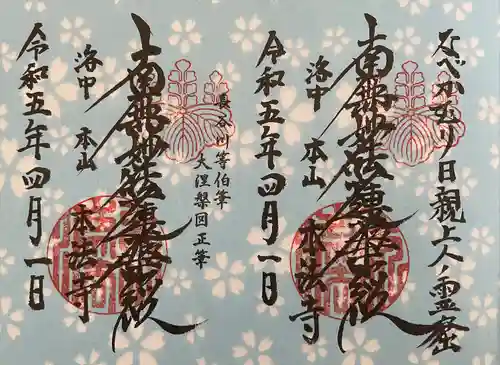 なべかむり日親上人ノ霊窟
南無妙法蓮華経
洛中 本山 本法寺
令和五年四月一日
長谷川等伯筆
大涅槃図正筆
南無妙法蓮華経
洛中 本山 本法寺
令和五年四月一日